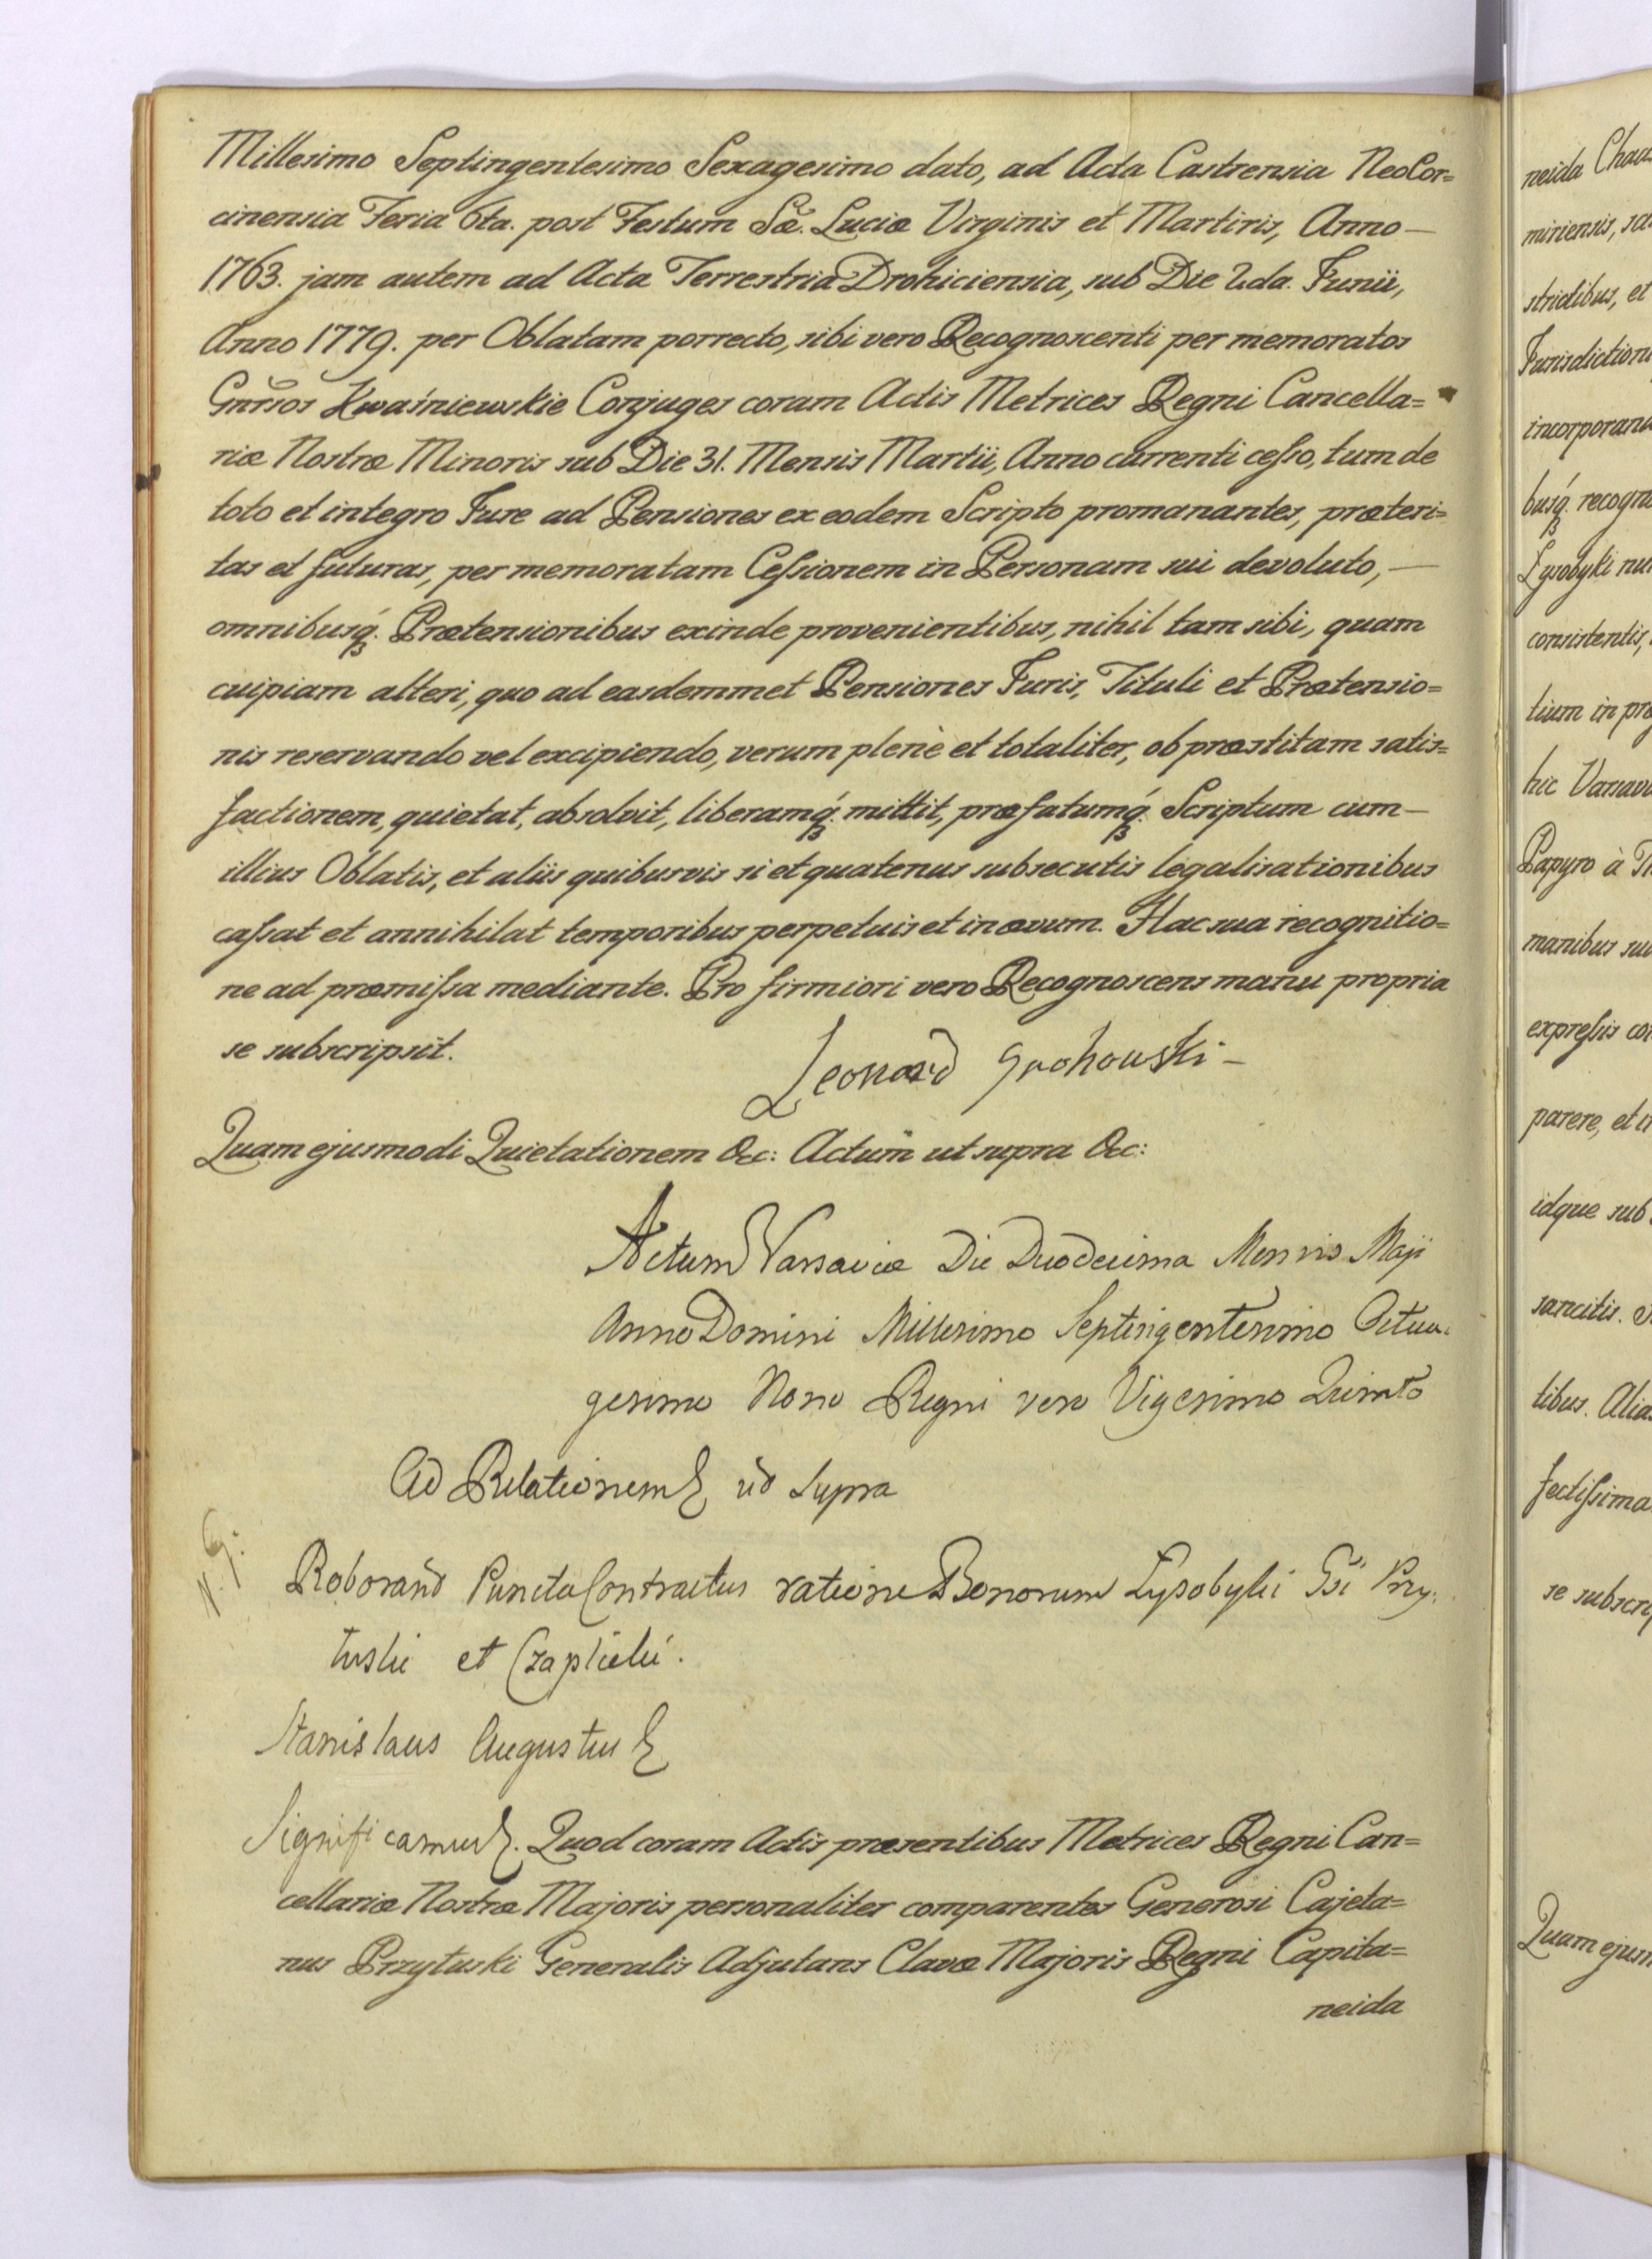 Millesimo Septingentesimo Sexagesimo dato, ad Acta Castrensia NeoCor=
cinensia Feria 6ta. post Festum Sæ. Luciæ Virginis et Martiris, Anno —
1763. jam autem ad Acta Terrestria Drohiciensia, sub Die 2da. Junii,
Anno 1779. per Oblatam porrecto, sibi vero Recognoscenti per memoratos
Gnrsos Kwaśniewskie Conjuges coram Actis Metrices Regni Cancella=
riæ Nostræ Minoris sub Die 31. Mensis Martii, Anno currenti cesso, tum de
toto et integro Jure ad Pensiones ex eodem Scripto promanantes, præteri=
tas et futuras, per memoratam Cessionem in Personam sui devoluto, —
omnibusq. Prætensionibus exinde provenientibus, nihil tam sibi, quam
cuipiam alteri, quo ad easdemmet Pensiones Juris, Tituli et Prætensio=
nis reservando vel excipiendo, verum plenè et totaliter, ob præstitam satis=
factionem, quietat, absolvit, liberamq. mittit, præfatumq. Scriptum cum —
illius Oblatis, et aliis quibusvis si et quatenus subsecutis legalisationibus
cassat et annihilat temporibus perpetuis et in ævum. Hac sua recognitio=
ne ad præmissa mediante. Pro firmiori vero Recognoscens manu propria
se subscripsit.
Leonard Grohowski —
Quam ejusmodi Quietationem &c: Actum ut supra &c:
Actum Varsaviæ Die Duodecima Mensis Maji
Anno Domini Millesimo Septingentesimo Octua.
gesimo Nono Regni vero Vigesimo Quinto
Ad Relationem ut supra
N. G.
Roborand Puncta Contractus ratione Bonorum Lysobyki Gsi Przy.
tuski et Czaplicki.
Stanislaus Augustus
Significamus. Quod coram Actis præsentibus Metrices Regni Can=
cellariæ Nostræ Majoris personaliter comparentes Generosi Cajeta=
nus Przytuski Generalis Adjutans Clavæ Majoris Regni Capita=
neida
neida
miriensis,
stridibus, et
incorporan
busq. recogn
Lysobyki
consistentis,
tium in
hic
Papyro à
manibus
expressis
parere, et
idque sub
sancitis.
tibus.
fectissima
se